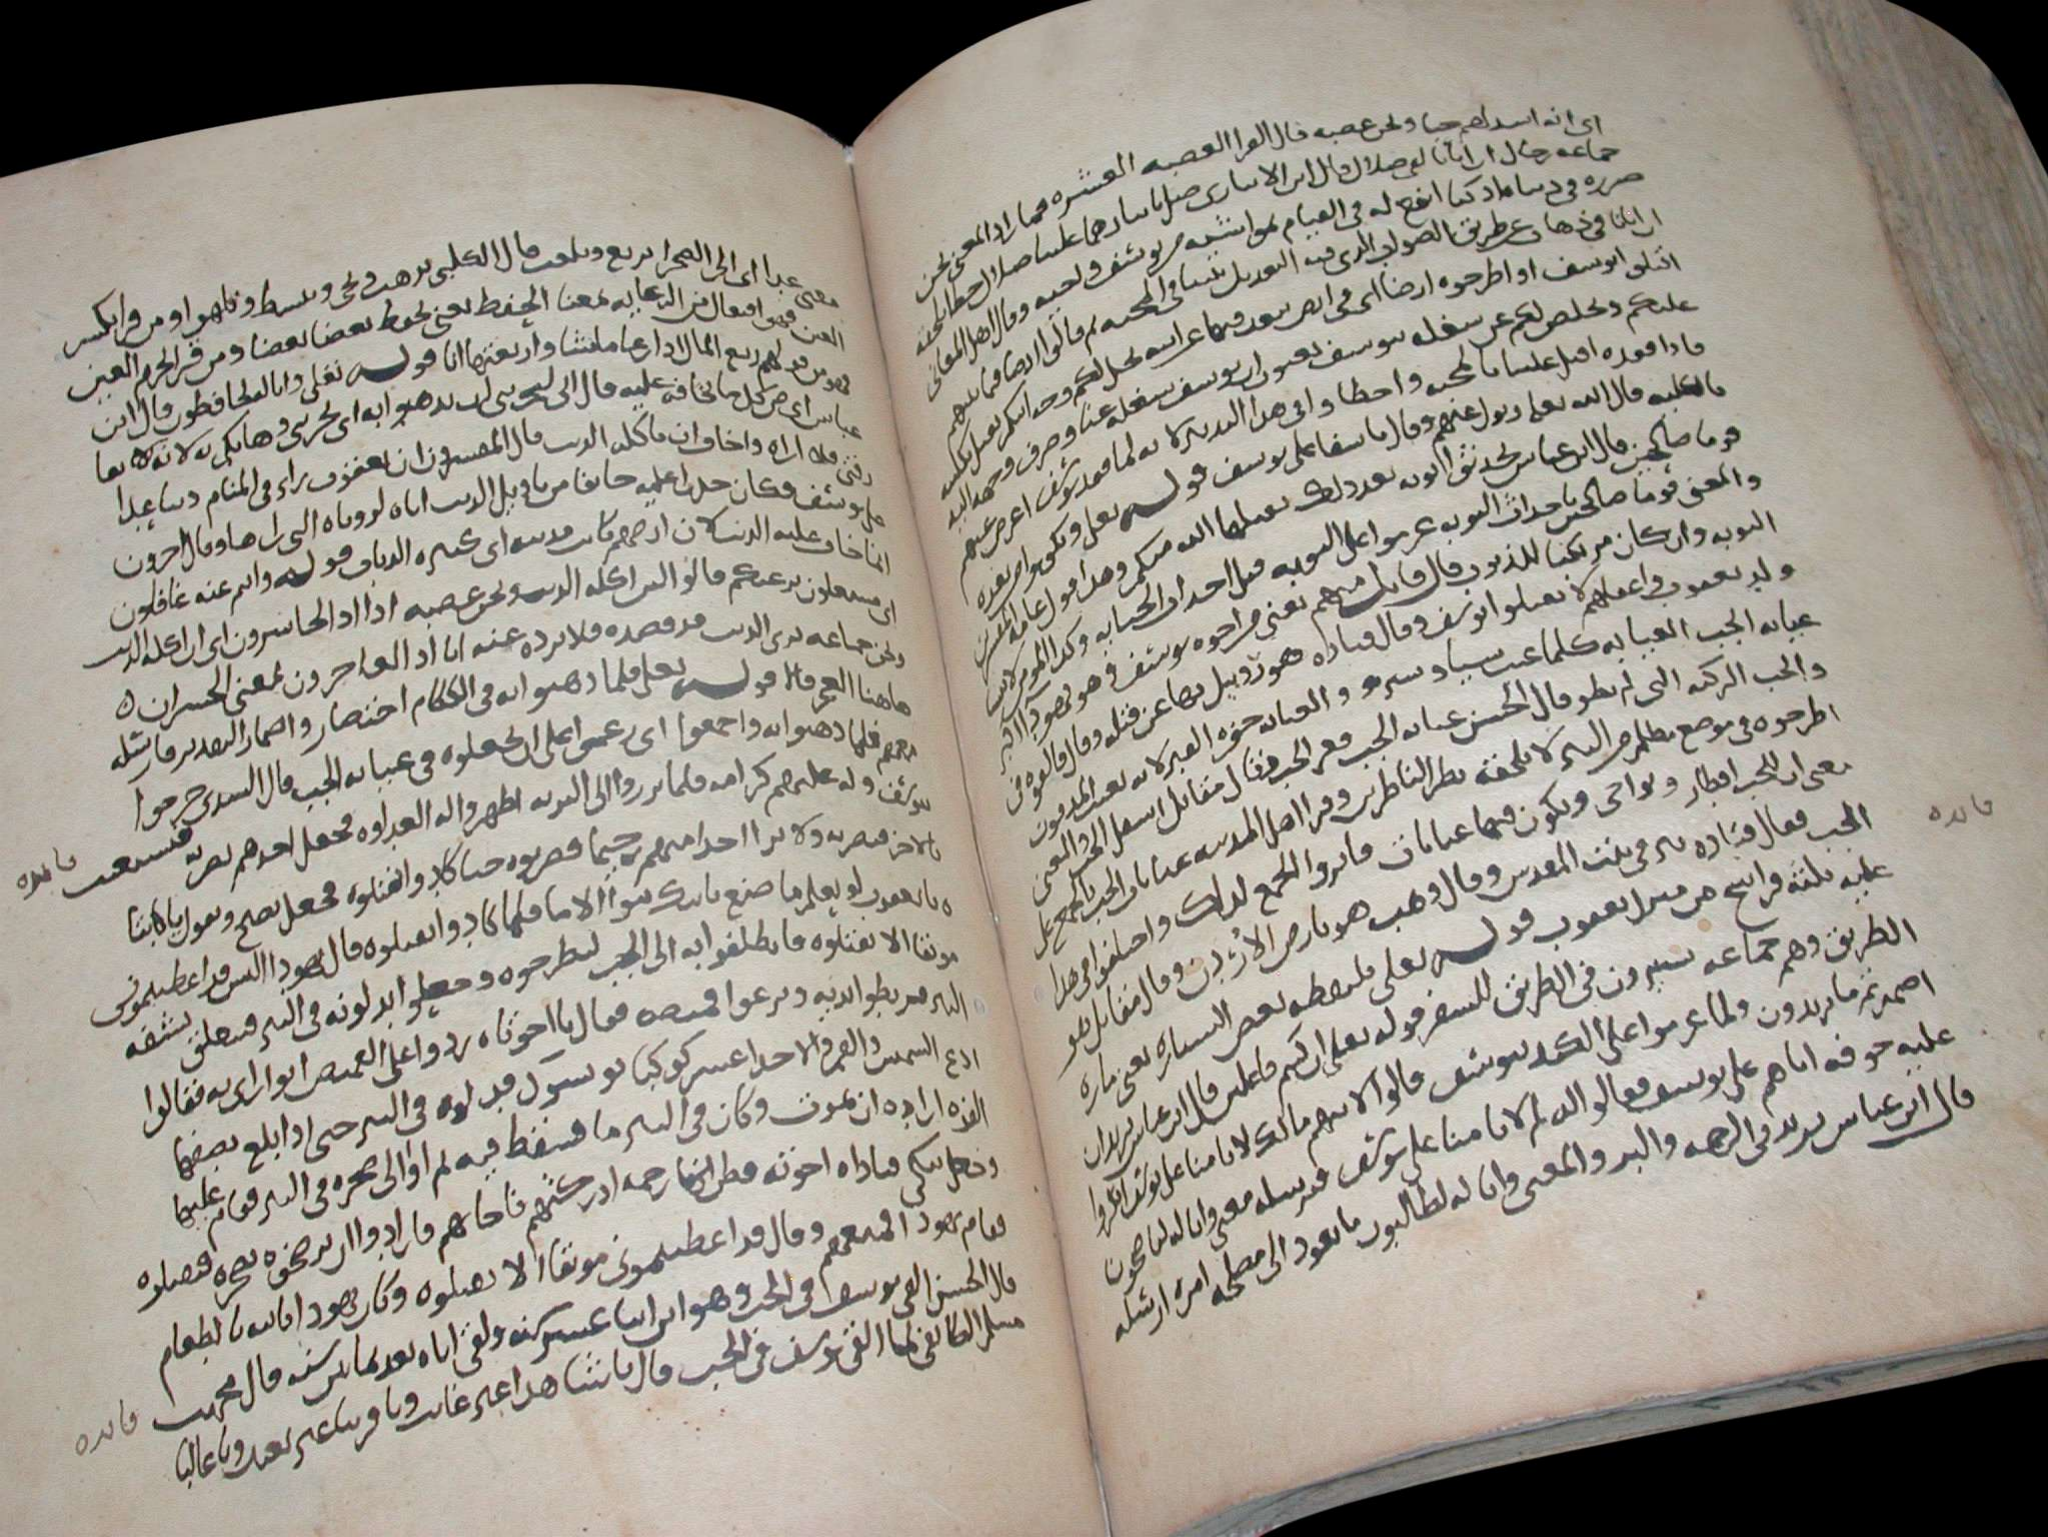 اى انه اشد لهم حبا ونحن عصبه قال الفرا العصبه العشره فما زاد المعنى نحن
جماعه رجال ان ابانا لفى ضلال قال ابن الانبارى ضل بايثارهما علينا ضلال خطا يلحقه
ضرره فى دنياه اذ كنا انفع له فى القيام بمواشيه من يوسف واخيه وقال اهل المعانى
ان ابانا فى ذهاب عن طريق الصواب الذى فيه التعديل بيننا فى المحبه ثم قالوا ايضا فيما بينهم
اقتلوا يوسف او اطرحوه ارضا اى فى ارض يبعد فيها عن ابيه يخل لكم وجه ابيكم يقبل بكليته
عليكم ويخلص لكم عن شغله بيوسف يعنون ان يوسف شغله عنا وصرف وجهه اليه
فاذا فقده اقبل علينا بالمحبه واخطاوا فى هذا التدبير لانه لما فقد يوسف اعرض عنهم
بالكليه قال الله تعالى وتولى عنهم وقال يا اسفا على يوسف قوله تعالى وتكونوا من بعده
قوما صالحين قال ابن عباس تحدثوا توبه بعد ذلك يقبلها الله منكم وهذا قول عامة المفسرين
والمعنى قوما صالحين باحداث التوبه عزموا على التوبه قبل احداث الجنايه وكذا المومن لا ينسى
التوبه وان كان مرتكبا للذنوب قال قايل منهم يعنى من اخوه يوسف وهو يهودا اكبر
ولد يعقوب واعقلهم لا تقتلوا يوسف وقال قتاده هو روبيل نهى عن قتله وقال القوه فى
غيابه الجب الغيابه كلما غيب شيا وستره والغيابه حفره القبر لانه يغيب المدفون
والجب الركيه التى لم تطو قال الحسن غيابه الجب قعر الجب وقال مقاتل اسفل الجب والمعنى
اطرحوه فى موضع مظلم من البير لا يلحقه نظر الناظرين وقرا اهل المدينه غيابات الجب بالجمع على
معنى ان للجب اقطار ونواحى ويكون فيها غيابات فاثروا الجمع لذلك واختلفوا فى هذا
الجب فقال قتاده بير فى بيت المقدس وقال وهب هو بارض الاردن وقال مقاتل هو
عليه ثلثة فراسخ من منزل يعقوب قوله تعالى يلتقطه بعض السياره يعنى ماره
الطريق وهم جماعه يسيرون فى الطريق للسفر قوله تعالى ان كنتم فاعلين قال ابن عباس يريد ان
اضمرتم ما تريدون ولما عزموا على الكيد بيوسف قالوا لابيهم مالك لا تامنا على يوسف اظهروا
عليه خوفه اياهم على يوسف فقالوا له لم لا تامنا على يوسف فترسله معنا وانا له لناصحون
قال ابن عباس يريد فى الرحمه والبر والمعنى وانا له لطالبون ما يعود الى مصلحه امره ارسله
فايده
معنا غدا اى الى الصحرا يرتع ويلعب قال الكلبى يذهب ويجى وينشط ويلهو ومن قرا بكسر
العين فهو افتعال من الرعايه بمعنا الحفظ يعنى يحفظ بعضا بعضا ومن قرا بجزم العين
فهو من قولهم رتع المال اذا رعا ما شا وارتعتها انا قوله تعالى وانا له لحافظون قال ابن
عباس اى من كل ما تخافه عليه قال انى ليحزننى ان تذهبوا به اى يحزننى ذهابكم به لانه لا يعا
رقنى فلا اراه واخاف ان ياكله الذيب قال المفسرون ان يعقوب راى فى المنام ذيبا عدا
على يوسف فكان حذرا عليه خايفا من تاويل الذيب اياه لروياه التى راها وقال اخرون
انما خاف عليه الذيب لان ارضهم كانت مذيبه اى كثيره الذياب قوله وانتم عنه غافلون
اى مشتغلون برعيكم قالوا لين اكله الذيب ونحن عصبه انا اذا لخاسرون اى ان اكله الذيب
ونحن جماعه نرى الذيب قد قصده فلا نرده عنه انا اذا لعاجزون بمعنى الخسران
هاهنا العجز قوله تعالى فلما ذهبوا به فى الكلام اختصار واضمار التقدير فارسله
معهم فلما ذهبوا به واجمعوا اى عزموا على ان يجعلوه فى غيابه الجب قال السدى خرجوا
بيوسف وله عليهم كرامه فلما برزوا الى البريه اظهروا له العداوه فجعل احدهم يضربه فيستغيث
فايده
بالاخر فيضربه ولا يرا احدا منهم رحيما فضربوه حتا كادوا يقتلوه فجعل يصيح ويقول يا ابتا
يا يعقوب لو تعلم ما صنع بابنك بنوا الاما فلما كادوا يقتلوه قال يهودا اليس قد اعطيتمونى
موثقا الا تقتلوه فانطلقوا به الى الجب ليطرحوه وجعلوا يدلونه فى البير فيتعلق بشفه
البير فربطوا يديه ونزعوا قميصه فقال يا اخوتاه ردوا على القميص اتوارى به فقالوا
ادع الشمس والقمر والاحد عشر كوكبا يونسوك فدلوه فى البير حتى اذا بلغ نصفها
القوه اراده ان يموت وكان فى البير ما فسقط فيه ثم اوا الى صخره فى البير فقام عليها
وجعل يبكى فناداه اخوته فظن انها رحمه ادركتهم فاجابهم فارادوا ان يرضخوه بصخره فيقتلوه
فقام يهودا فمنعهم وقال قد اعطيتمونى موثقا الا تقتلوه وكان يهودا ياتيه بالطعام
قال الحسن القى يوسف فى الجب وهو ابن اثنا عشر سنه ولقى اباه بعد ثمانين سنه قال محمد بن
فايده
مسلم الطايفى لما القى يوسف فى الجب قال يا شاهدا غير غايب ويا قريبا غير بعيد ويا غالبا